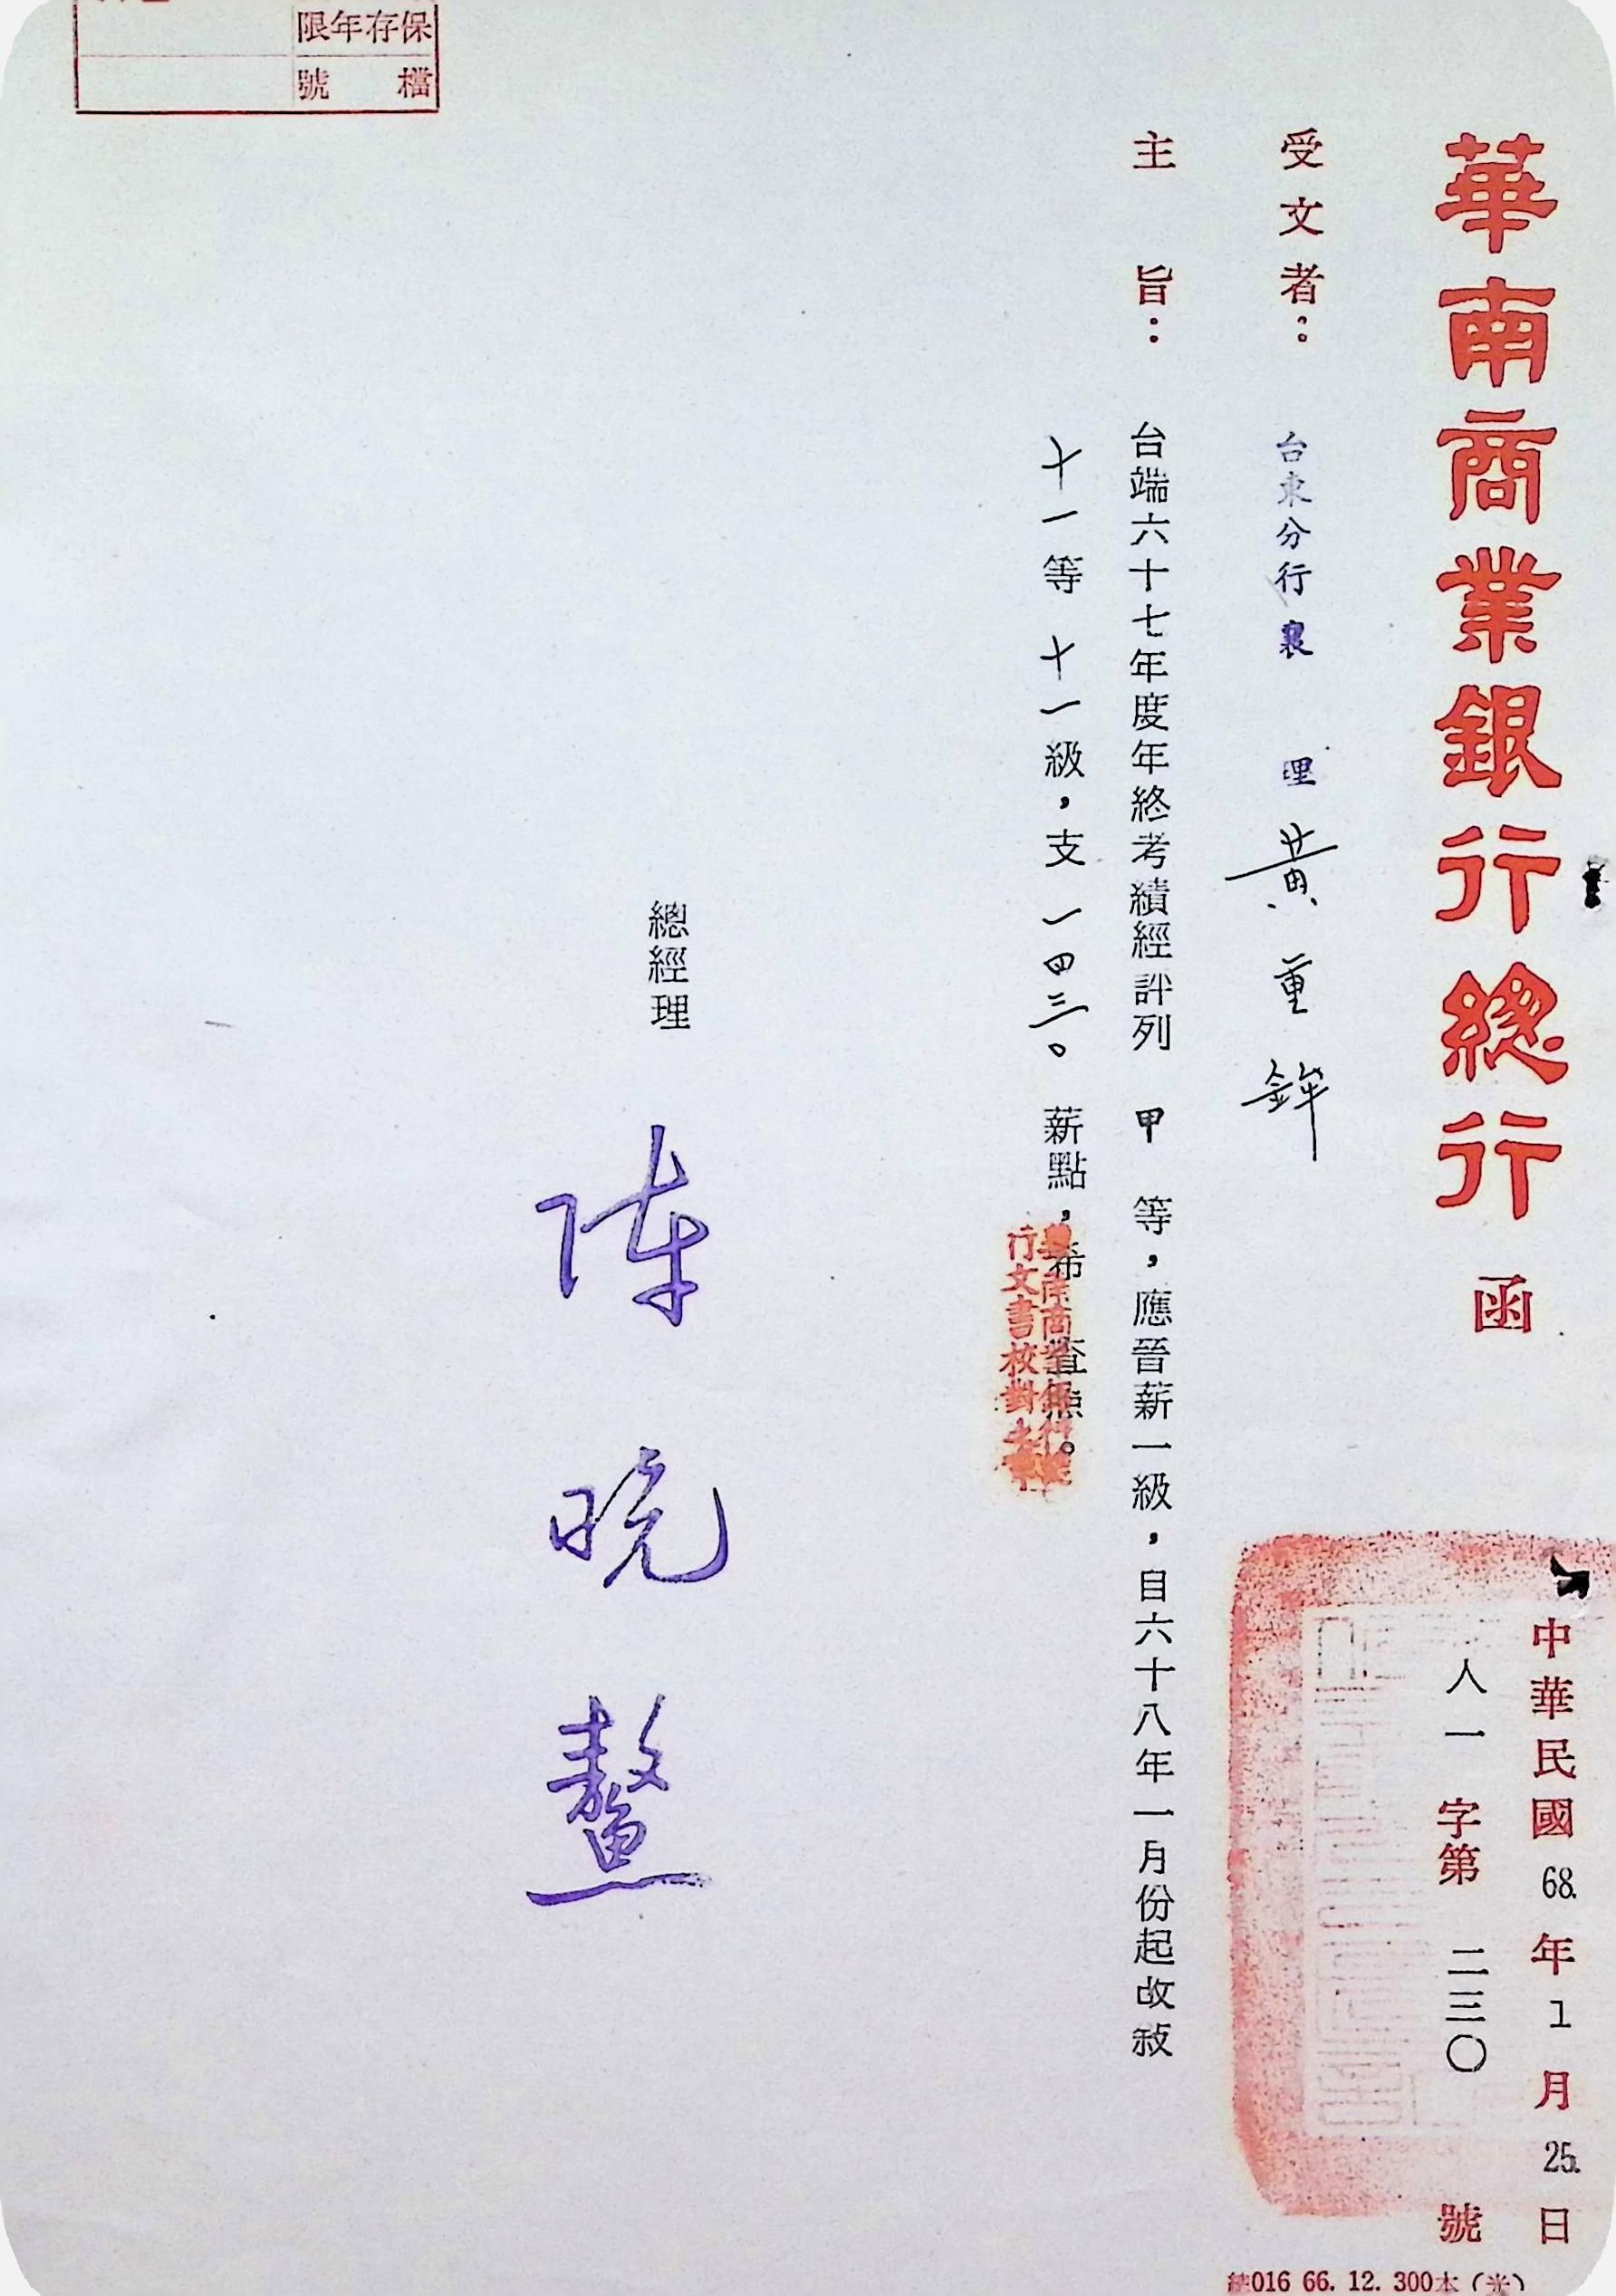 華南商業銀行總行 函
中華民國68.年1月25.日
人一字第二三〇號
受文者：台東分行襄理 黃重鉾
主旨：台端六十七年度年終考績經評列 甲 等，應晉薪一級，自六十八年一月份起改敍
十一等 十一級，支 一四三〇 薪點，希 查照。
華南商業銀行總
行文書校對之章
總經理 陳晚鰲
保存年限
檔號
016 66. 12. 300本（光）